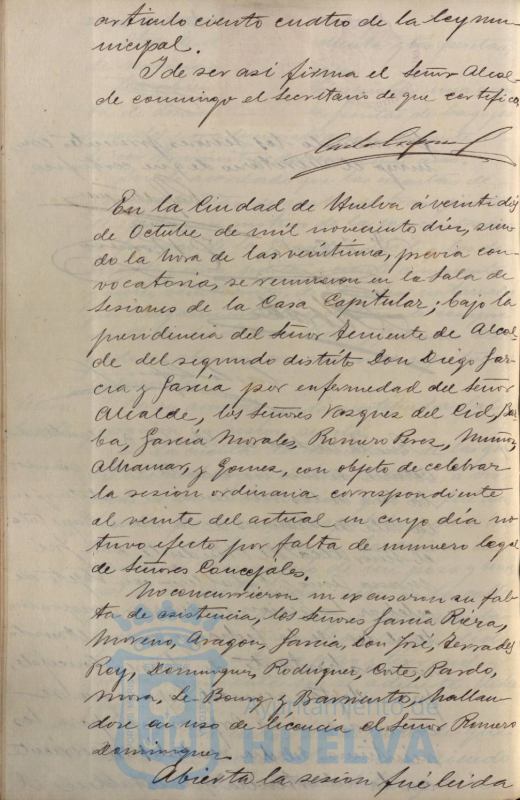 articulo ciento cuatro de la ley mu-
nicipal.
I de ser asi firma el Señor Alcal-
de conmigo el Secretario de que certifico
En la Ciudad de Huelva á veintidos
de Octubre de mil novecientos diez, sien
do la hora de las veintiuna, previa con-
vocatoria, se reunieron en la Sala de
Sesiones de la Casa Capitular, bajo la
presidencia del Señor Teniente de Alcal-
de del segundo distrito Don Diego Gar-
cia y Garcia por enfermedad del Señor
Alcalde, los Señores Vazquez del Cid, Bar
ba, Garcia Morales, Romero Perez, Muñoz,
Alhamar, y Gomez, con objeto de celebrar
la sesion ordinaria correspondiente
al veinte del actual en cuyo día no
tuvo efecto por falta de numero legal
de Señores Concejales.
No concurrieron ni excusaron su fal-
ta de asistencia, los Señores Garcia Riera,
Moreno, Aragon, Garcia, Don José, Terrades
Rey, Dominguez, Rodriguez, Orta, Pardo,
Mora, Le Bourg y Barrientos, hallan-
dose en uso de licencia el Señor Romero
Dominguez
Abierta la sesion fué leida
Ayuntamiento de
HUELVA